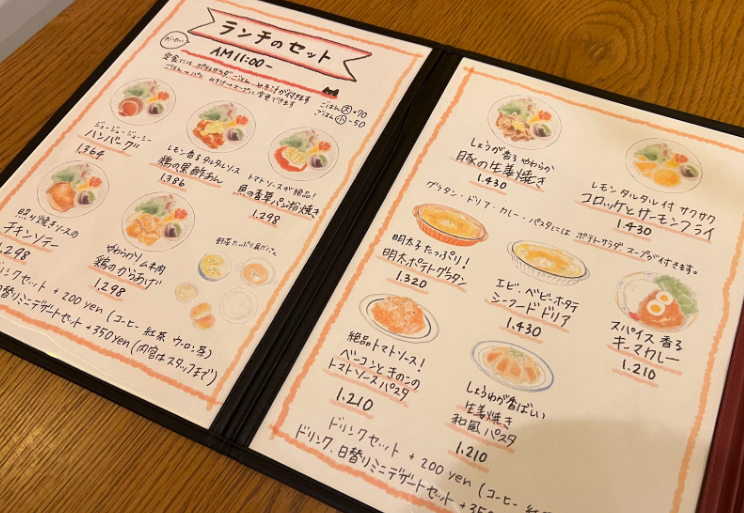 ランチのセット
AM11:00-
定食には ポテトサラダ ごはん みそ汁が付きます
ごはん→パン みそ汁→スープに変更できます
ごはん大+70
ごはん小-50
ジューシージューシー
ハンバーグ
1.364
レモン香るタルタルソース
鶏の黒酢あん
1.386
トマトソースが絶品!
魚の香草パン粉焼き
1.298
照り焼きソースの
チキンソテー
1.298
やわらかリムネ肉
鶏のからあげ
1.298
野菜たっぷり具だくさん
ドリンクセット +200yen (コーヒー 紅茶 ウーロン茶)
日替りミニデザートセット +350yen (内容はスタッフまで)
しょうが香る やわらか
豚の生姜焼き
1.430
レモンタルタル付 サクサク
コロッケとサーモンフライ
1.430
グラタン・ドリア・カレー・パスタには ポテトサラダ スープが付きます。
明太子たっぷり!
明太ポテトグラタン
1.320
エビ・ベビーホタテ
シーフードドリア
1.430
スパイス香る
キーマカレー
1.210
絶品トマトソース!
ベーコンときのこの
トマトソースパスタ
1.210
しょうゆが香ばしい
生姜焼き
和風パスタ
1.210
ドリンクセット +200yen (コーヒー 紅茶
ドリンク、日替りミニデザートセット +350